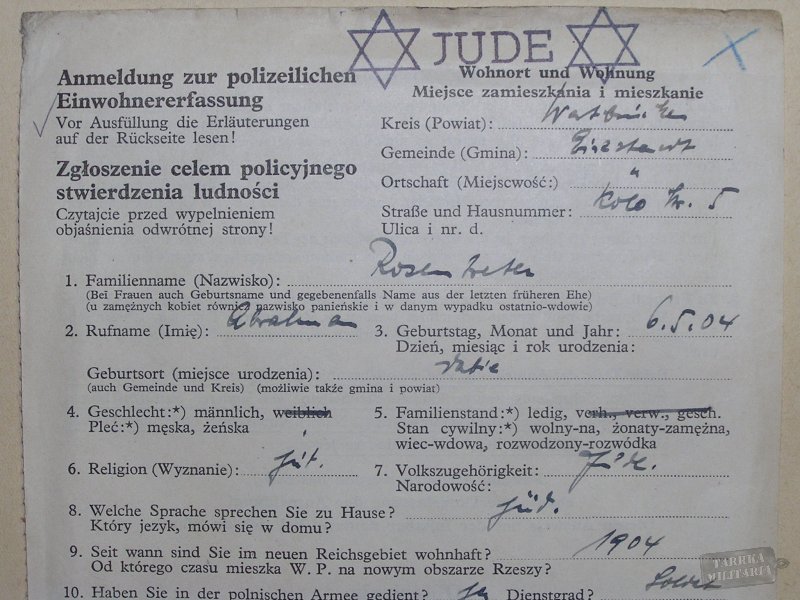 JUDE
Anmeldung zur polizeilichen
Einwohnererfassung
Vor Ausfüllung die Erläuterungen
auf der Rückseite lesen!
Zgłoszenie celem policyjnego
stwierdzenia ludności
Czytajcie przed wypelnieniem
objaśnienia odwrótnej strony!
Wohnort und Wohnung
Miejsce zamieszkania i mieszkanie
Kreis (Powiat):
Gemeinde (Gmina):
Ortschaft (Miejscwość:) "
Straße und Hausnummer: Kolo Str. 5
Ulica i nr. d.
1. Familienname (Nazwisko):
(Bei Frauen auch Geburtsname und gegebenenfalls Name aus der letzten früheren Ehe)
(u zamężnych kobiet również nazwisko panieńskie i w danym wypadku ostatnio-wdowie)
2. Rufname (Imię): Abraham
3. Geburtstag, Monat und Jahr: 6.5.04
Dzień, miesiąc i rok urodzenia:
Geburtsort (miejsce urodzenia):
(auch Gemeinde und Kreis) (możliwie także gmina i powiat)
4. Geschlecht:*) männlich, weiblich
Płeć:*) męska, żeńska
5. Familienstand:*) ledig, verh., verw., gesch.
Stan cywilny:*) wolny-na, żonaty-zamężna,
wiec-wdowa, rozwodzony-rozwódka
6. Religion (Wyznanie): jüd.
7. Volkszugehörigkeit: Jude.
Narodowość:
8. Welche Sprache sprechen Sie zu Hause? jüd.
Który jezyk, mówi się w domu?
9. Seit wann sind Sie im neuen Reichsgebiet wohnhaft? 1904
Od którego czasu mieszka W. P. na nowym obszarze Rzeszy?
10. Haben Sie in der polnischen Armee gedient? ja Dienstgrad?
TARRKA
MILITARIA